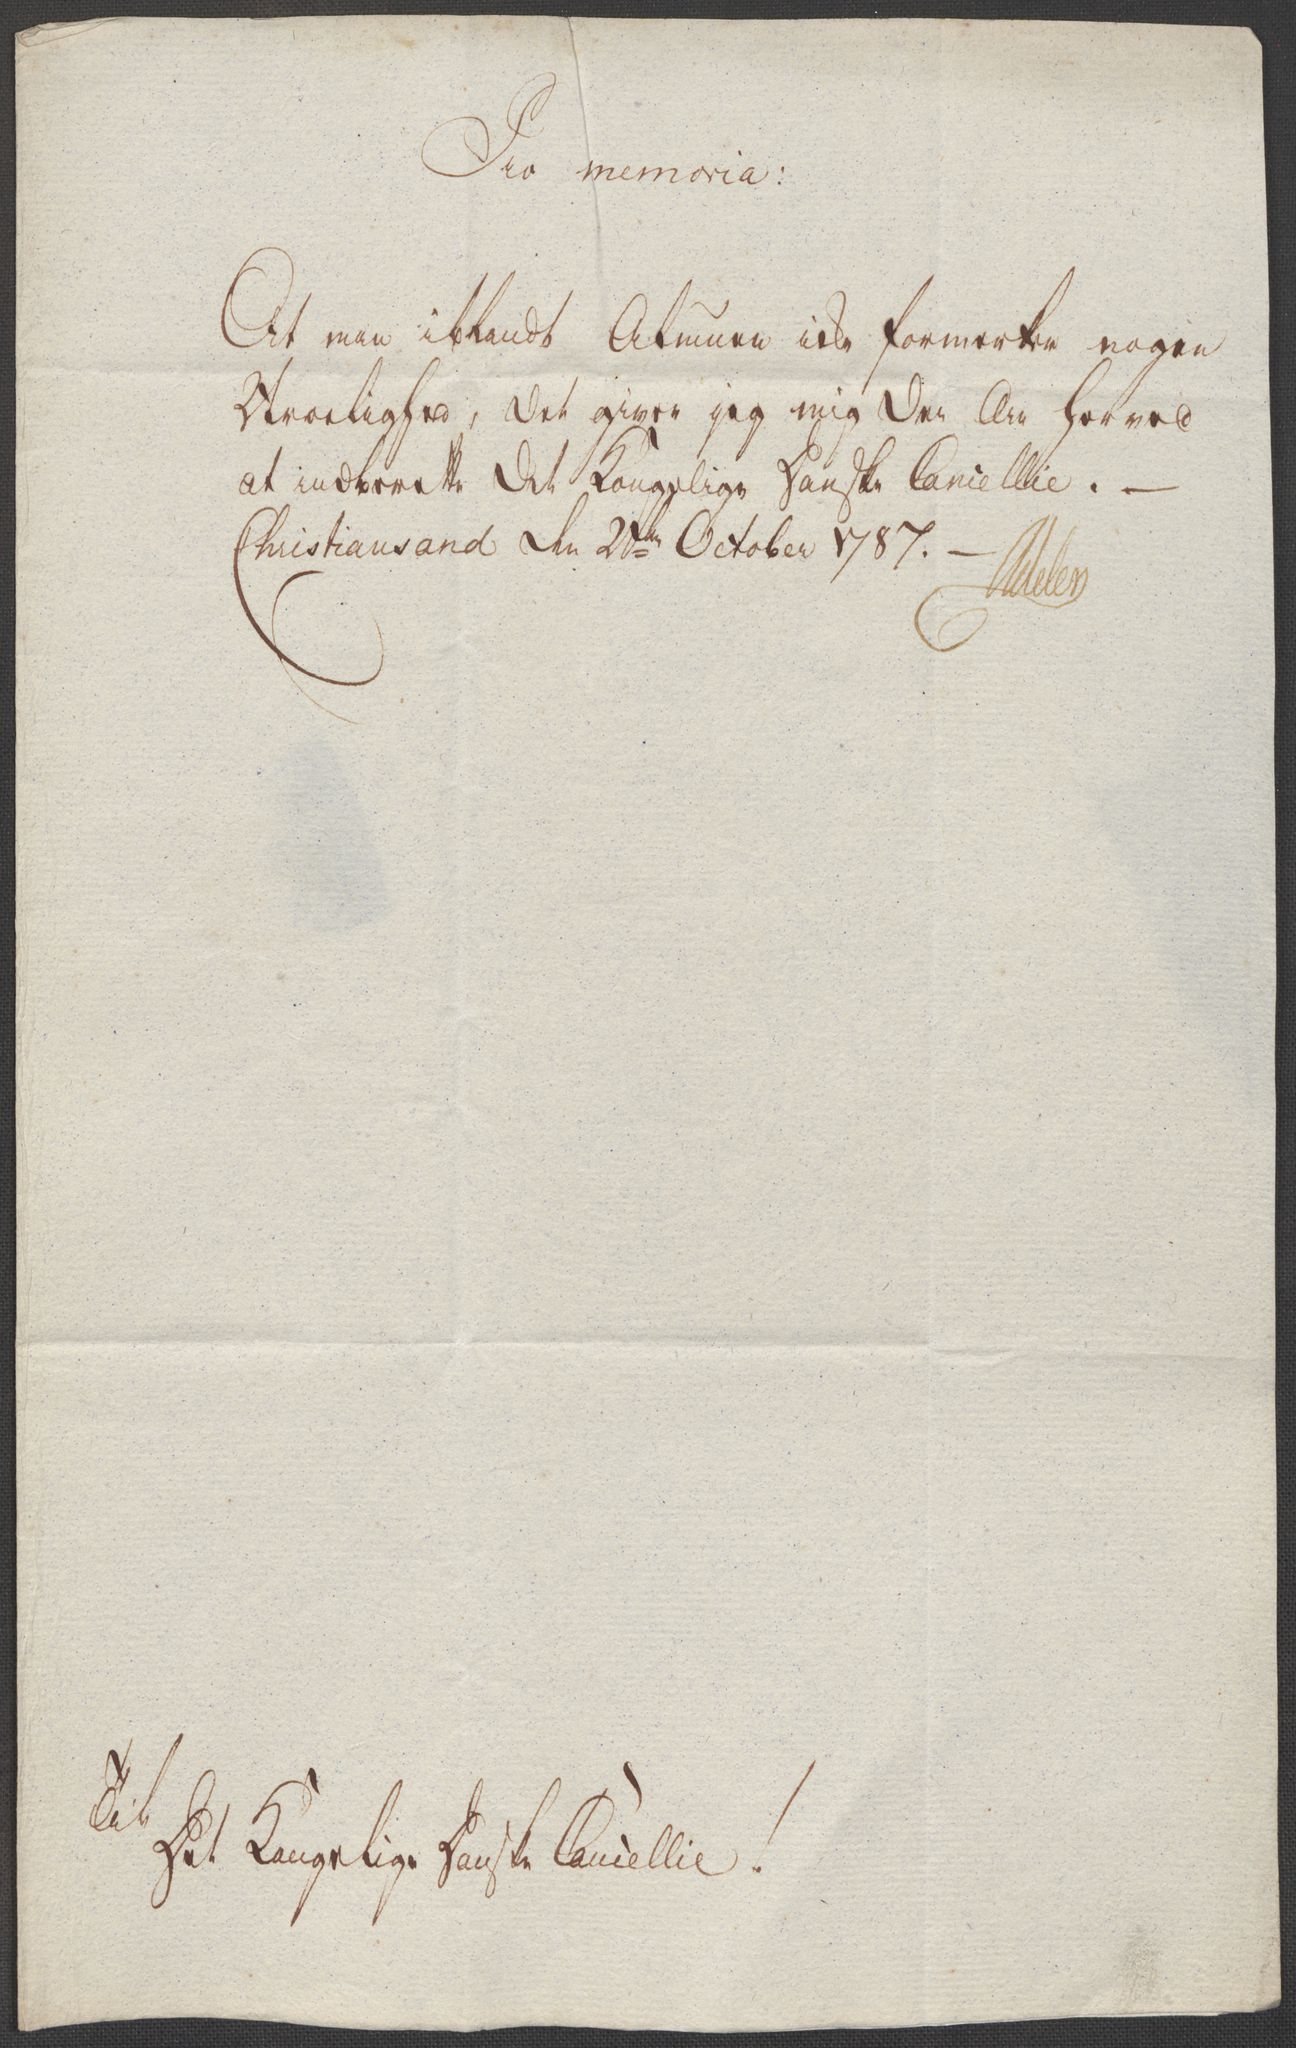 Pro memoria:
At man iblandt Almuen icke formerker nogen
Uroelighed, det giver jeg mig den Ære herved
at indberette Det Kongelige Danske Cancellie. —
Christiansand den October 1787. — Adeler
Till
Det Kongelige Danske Cancellie!